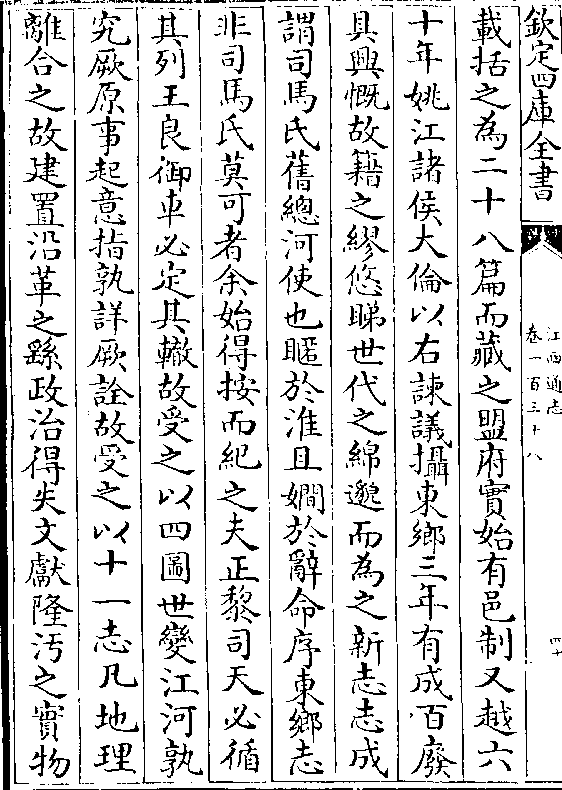 欽定四庫全書
江西通志
卷一百三十八
四十
載括之為二十八篇而藏之盟府實始有邑制又越六
十年姚江諸侯大倫以右諫議攝東鄉三年有成百廢
具興慨故籍之繆悠睇世代之綿邈而為之新志志成
謂司馬氏舊總河使也暱於淮且嫺於辭命序東鄉志
非司馬氏莫可者余始得按而紀之夫正黎司天必循
其列王良御車必定其轍故受之以四圖世變江河孰
究厥原事起意指孰詳厥詮故受之以十一志凡地理
離合之故建置沿革之繇政治得失文獻隆汚之實物